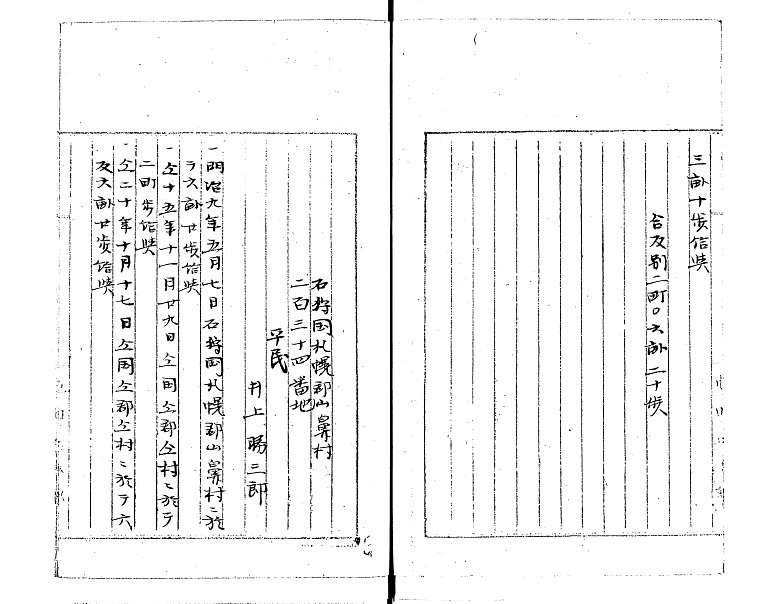 三畝十歩給与
合反別二町〇六畝二十歩
石狩国札幌郡山鼻村
二百三十四番地
平民
井上勝三郎
一明治九年五月七日石狩国札幌郡山鼻村ニ於
テ六畝廿歩給与
一仝十五年十一月廿九日仝国仝郡仝村ニ於テ
二町歩給与
一仝二十年十月十七日仝国仝郡仝村ニ於テ六
反六畝廿歩給与